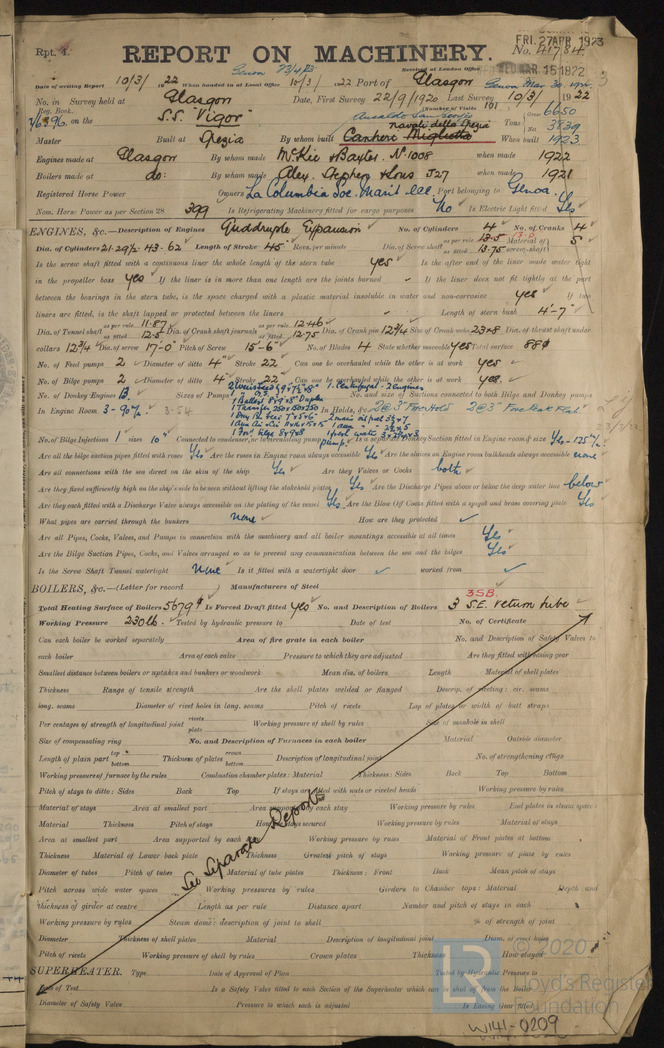 Rpt. 4.
REPORT ON MACHINERY.
No. 41784
FRI. 27 APR. 1923
WED. MAR. 15 1922
Received at London Office
Date of writing Report 10/3/ 1922 When handed in at Local Office 10/3/ 1922 Port of Glasgow
No. in Survey held at Glasgow Date, First Survey 22/9/1920 Last Survey 10/3/ 1922
Reg. Book.
on the S.S. "Vigor" (Number of Visits 101
Gross 6650
Tons
Net 3839
Master Built at Spezia By whom built Cantiere Migliotto When built 1923
Engines made at Glasgow By whom made McKie & Baxter. No 1008 when made 1922
Boilers made at do: By whom made Alex. Stephen & Sons 527 when made 1921
Registered Horse Power Owners La Columbia Soc. Marit. Port belonging to Genoa.
Nom. Horse Power as per Section 28 399 Is Refrigerating Machinery fitted for cargo purposes No Is Electric Light fitted Yes
ENGINES, &c.—Description of Engines Quadruple Expansion No. of Cylinders 4 No. of Cranks 4
Dia. of Cylinders 21-29½-43-62 Length of Stroke 45 Revs. per minute Dia. of Screw shaft as per rule 13.5 as fitted 13.75 Material of screw shaft S
Is the screw shaft fitted with a continuous liner the whole length of the stern tube yes Is the after end of the liner made water tight
in the propeller boss yes If the liner is in more than one length are the joints burned If the liner does not fit tightly at the part
between the bearings in the stern tube, is the space charged with a plastic material insoluble in water and non-corrosive yes If two
liners are fitted, is the shaft lapped or protected between the liners Length of stern bush 4'-7"
Dia. of Tunnel shaft as per rule 11.87 as fitted 12.5 Dia. of Crank shaft journals as per rule 12.46 as fitted 12.75 Dia. of Crank pin 12¾ Size of Crank webs 23x8 Dia. of thrust shaft under
collars 12¾ Dia. of screw 17-0 Pitch of Screw 15'-6" No. of Blades 4 State whether moveable yes Total surface 88
No. of Feed pumps 2 Diameter of ditto 4 Stroke 22 Can one be overhauled while the other is at work yes
No. of Bilge pumps 2 Diameter of ditto 4 Stroke 22 Can one be overhauled while the other is at work yes.
No. of Donkey Engines 13 Sizes of Pumps No. and size of Suctions connected to both Bilge and Donkey pumps
In Engine Room 3-3½ 3-54 In Holds, &c. 2 @ 3" Fore Hold 2 @ 3" Fore Peak Flat
No. of Bilge Injections 1 sizes 10" Connected to condenser, or to circulating pump Is a separate Donkey Suction fitted in Engine room & size Yes
Are all the bilge suction pipes fitted with roses Yes Are the roses in Engine room always accessible Yes Are the sluices on Engine room bulkheads always accessible none
Are all connections with the sea direct on the skin of the ship Yes Are they Valves or Cocks both
Are they fixed sufficiently high on the ship's side to be seen without lifting the stokehold plates Yes Are the Discharge Pipes above or below the deep water line below
Are they each fitted with a Discharge Valve always accessible on the plating of the vessel Yes Are the Blow Off Cocks fitted with a spigot and brass covering plate Yes
What pipes are carried through the bunkers none How are they protected
Are all Pipes, Cocks, Valves, and Pumps in connection with the machinery and all boiler mountings accessible at all times Yes
Are the Bilge Suction Pipes, Cocks, and Valves arranged so as to prevent any communication between the sea and the bilges Yes
Is the Screw Shaft Tunnel watertight None Is it fitted with a watertight door worked from
BOILERS, &c.—(Letter for record ) Manufacturers of Steel
3 SB.
Total Heating Surface of Boilers 5679 Is Forced Draft fitted yes No. and Description of Boilers 3 S.E. return tube
Working Pressure 230 lb. Tested by hydraulic pressure to Date of test No. of Certificate
Can each boiler be worked separately Area of fire grate in each boiler No. and Description of Safety Valves to
each boiler Area of each valve Pressure to which they are adjusted Are they fitted with easing gear
Smallest distance between boilers or uptakes and bunkers or woodwork Mean dia. of boilers Length Material of shell plates
Thickness Range of tensile strength Are the shell plates welded or flanged Descrip. of riveting: cir. seams
long. seams Diameter of rivet holes in long. seams Pitch of rivets Lap of plates or width of butt straps
Per centages of strength of longitudinal joint rivets plate Working pressure of shell by rules Size of manhole in shell
Size of compensating ring No. and Description of Furnaces in each boiler Material Outside diameter
Length of plain part top bottom Thickness of plates crown bottom Description of longitudinal joint No. of strengthening rings
Working pressure of furnace by the rules Combustion chamber plates: Material Thickness: Sides Back Top Bottom
Pitch of stays to ditto: Sides Back Top If stays are fitted with nuts or riveted heads Working pressure by rules
Material of stays Area at smallest part Area supported by each stay Working pressure by rules End plates in steam space:
Material Thickness Pitch of stays How are stays secured Working pressure by rules Material of stays
Area at smallest part Area supported by each Working pressure by rules Material of Front plates at bottom
Thickness Material of Lower back plate Thickness Greatest pitch of stays Working pressure of plate by rules
Diameter of tubes Pitch of tubes Material of tube plates Thickness: Front Back Mean pitch of stays
Pitch across wide water spaces Working pressures by rules Girders to Chamber tops: Material Depth and
thickness of girder at centre Length as per rule Distance apart Number and pitch of stays in each
Working pressure by rules Steam dome: description of joint to shell % of strength of joint
Diameter Thickness of shell plates Material Description of longitudinal joint Diam. of rivet holes
Pitch of rivets Working pressure of shell by rules Crown plates Thickness How stayed
See Separate Reports
SUPERHEATER. Type Date of Approval of Plan Tested by Hydraulic Pressure to
Date of Test Is a Safety Valve fitted to each Section of the Superheater which can be shut off from the Boiler
Diameter of Safety Valve Pressure to which each is adjusted Is Easing Gear fitted
© 2020
Lloyd's Register
Foundation
LR
W141-0209